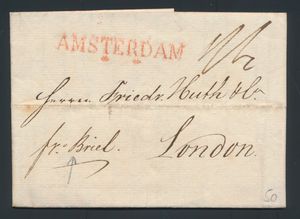 AMSTERDAM
Herren Friedr. Huth & Co.
fr. Briel. London.
50